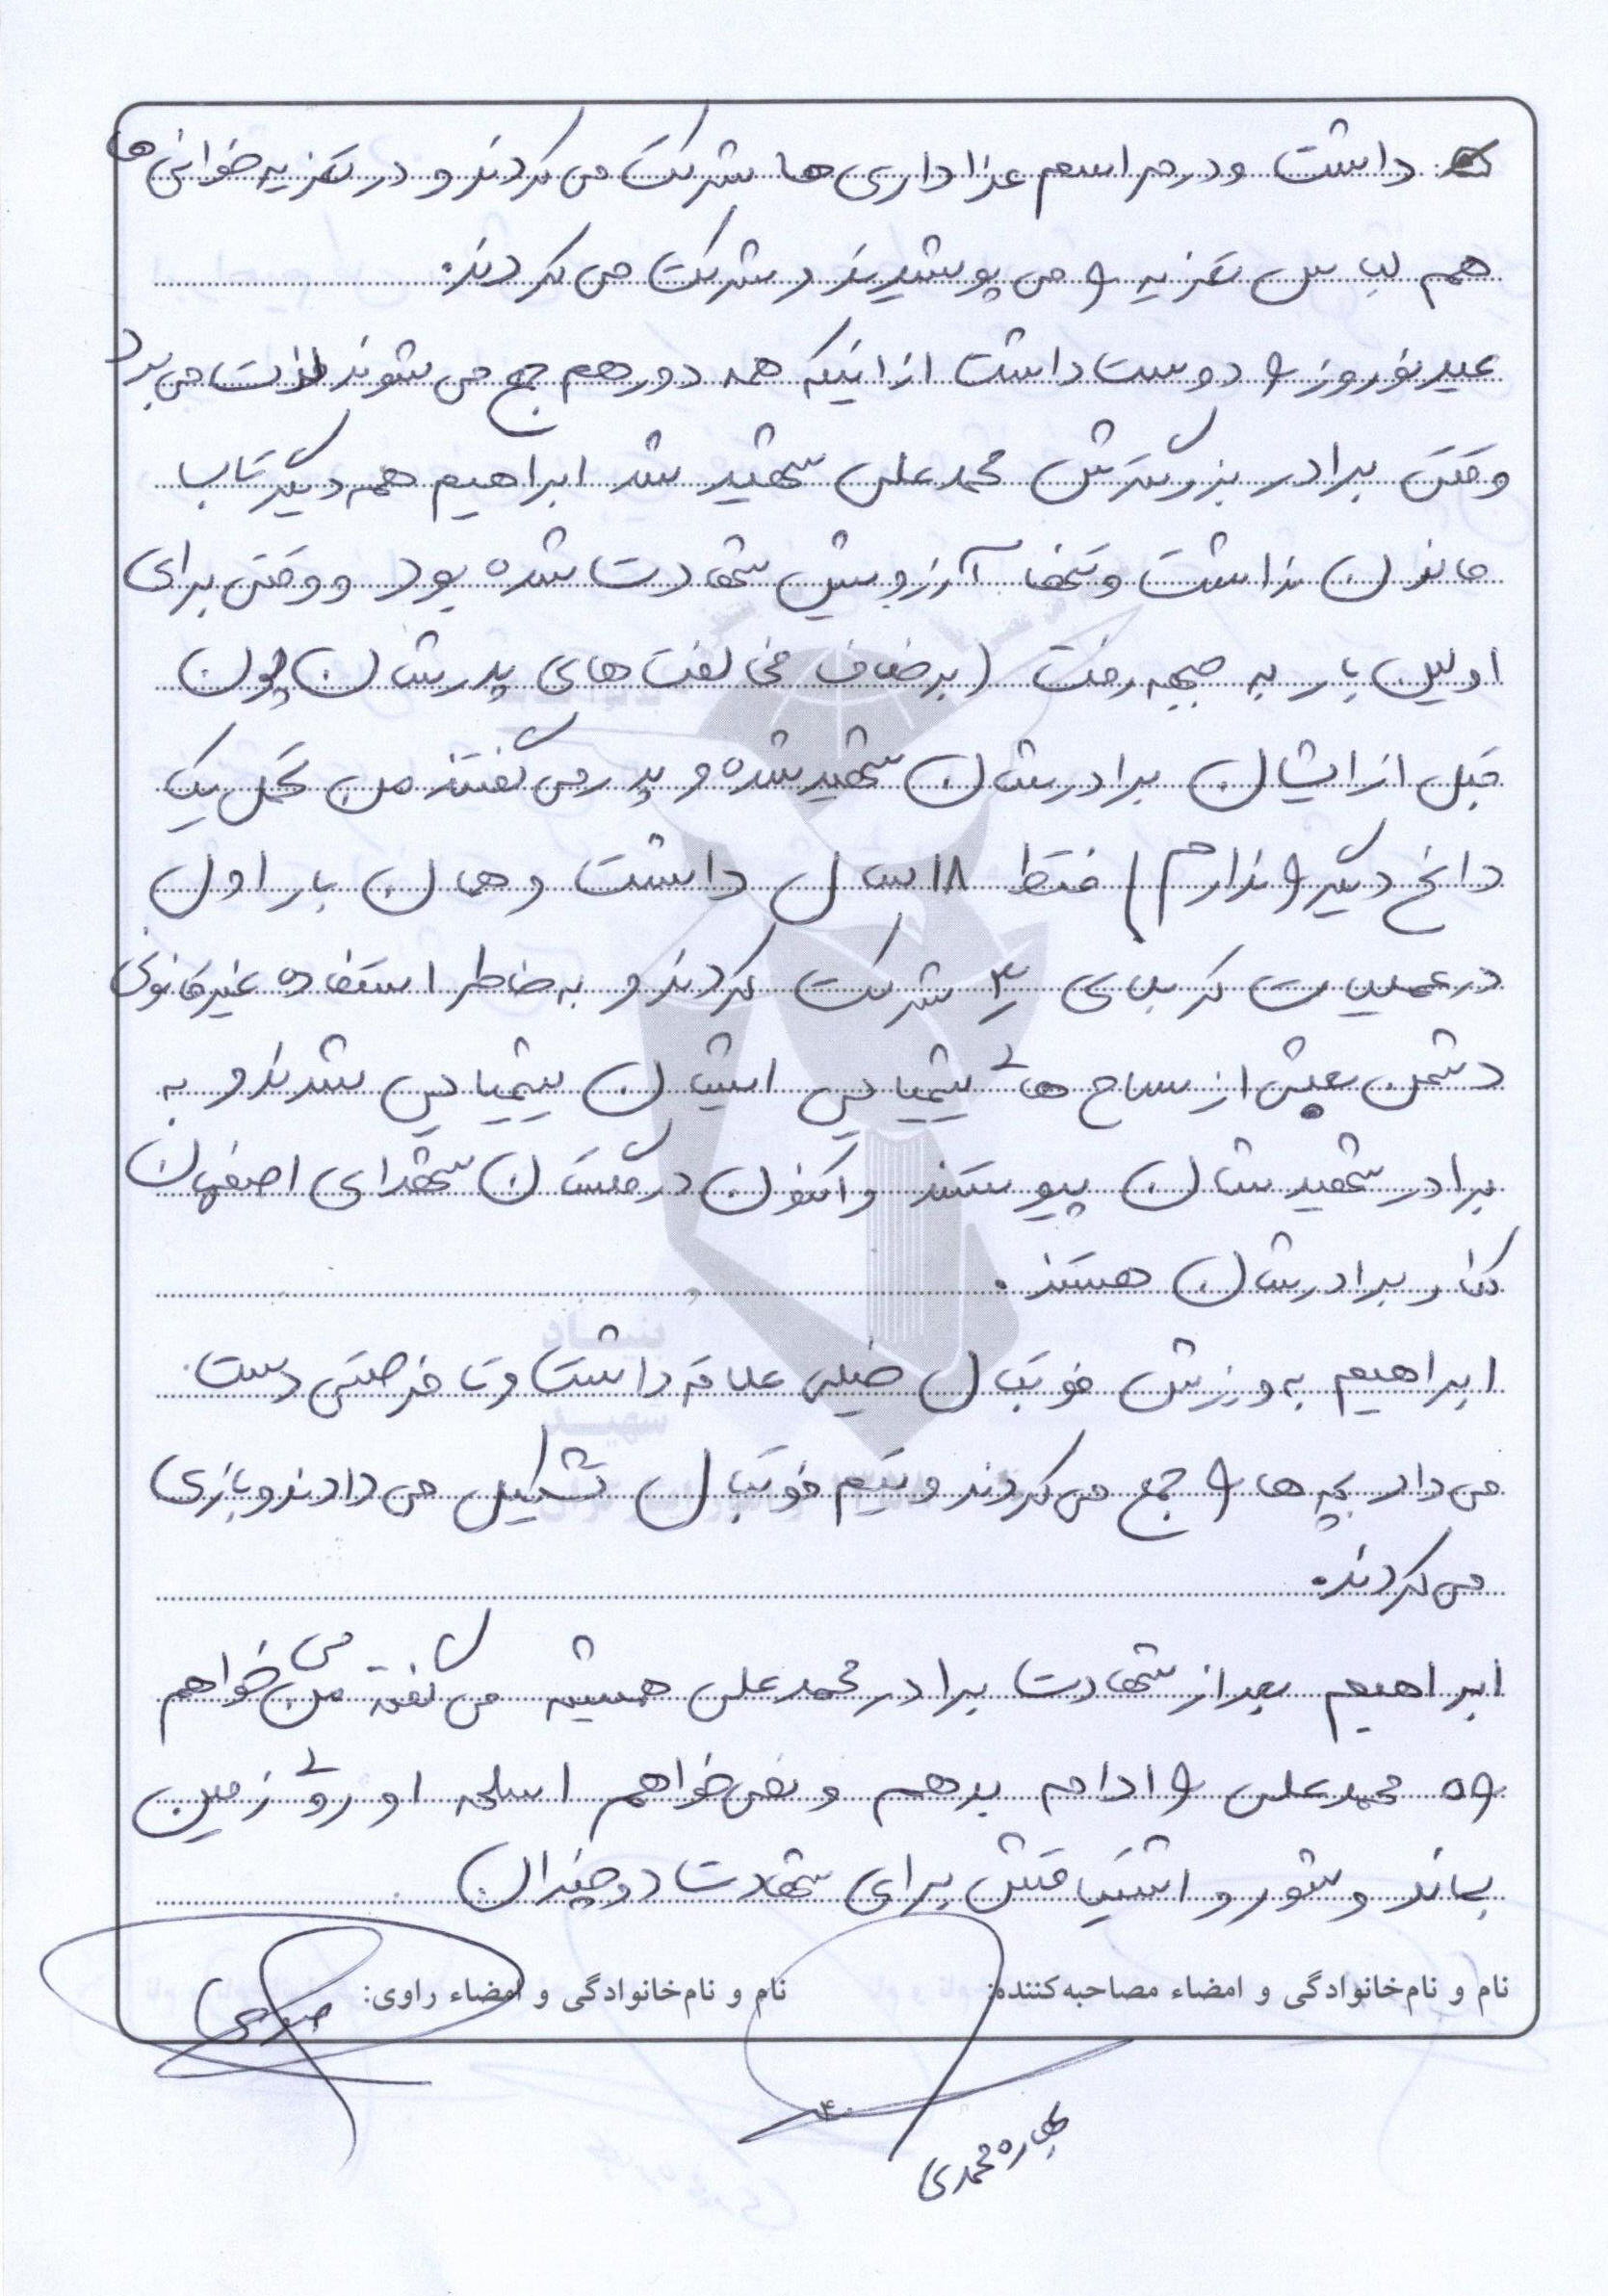 داشت و در مراسم عزاداری ها شرکت می کردند و در تعزیه خوانی ها
هم لباس تعزیه را می پوشیدند و شرکت می کردند.
عید نوروز را دوست داشت از اینکه همه دور هم جمع می شوند لذت می برد
وقتی برادر بزرگترش محمدعلی شهید شد ابراهیم هم دیگر تاب
ماندن نداشت و تنها آرزویش شهادت شده بود و وقتی برای
اولین بار به جبهه رفت (برخلاف مخالفت های پدرشان چون
قبل از ایشان برادرشان شهید شده و پدر می گفتند من تحمل یک
داغ دیگر را ندارم) فقط ۱۸ سال داشت و همان بار اول
در عملیات کربلای ۴ شرکت کردند و به خاطر استفاده غیرقانونی
دشمن بعثی از سلاح های شیمیایی ایشان شیمیایی شدند و به
برادر شهیدشان پیوستند و اکنون در گلستان شهدای اصفهان
کنار برادرشان هستند.
ابراهیم به ورزش فوتبال خیلی علاقه داشت و تا فرصتی دست
می داد بچه ها را جمع می کردند و تیم فوتبال تشکیل می دادند و بازی
می کردند.
ابراهیم بعد از شهادت برادر محمدعلی همیشه می گفت من می خواهم
راه محمدعلی را ادامه بدهم و نمی خواهم اسلحه او روی زمین
بماند و شور و اشتیاقش برای شهادت دوچندان
نام و نام‌خانوادگی و امضاء مصاحبه‌کننده: نام و نام‌خانوادگی و امضاء راوی:
۴۰
بهاره محمدی
بنیاد
شهید